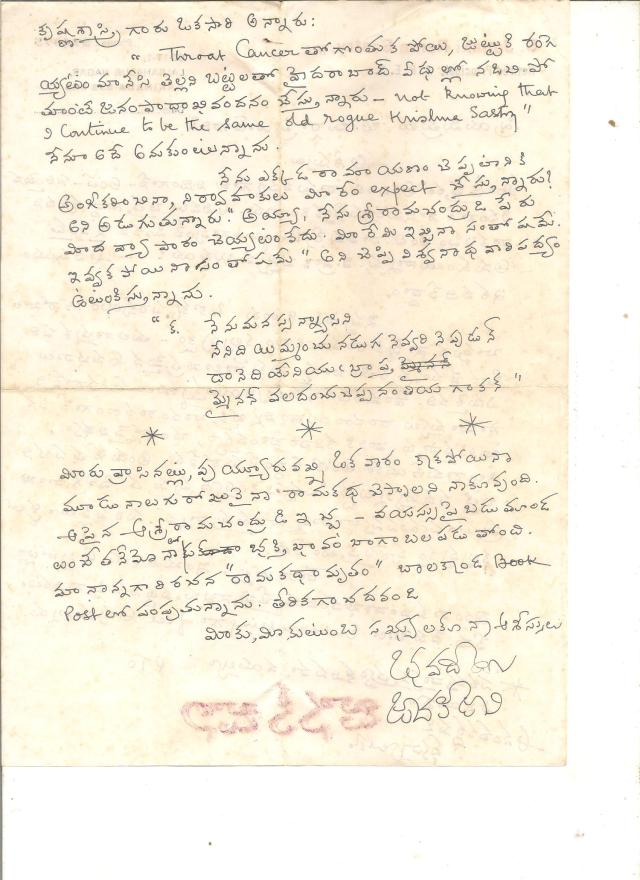 కృష్ణశాస్త్రి గారు ఒకసారి అన్నారు:
"Throat Cancer తో గొంతుక పోయి, జుట్టుకి రంగె
య్యటం మానేసి తెల్లని బట్టలతో హైదరాబాద్ వీథుల్లో నడిచి పో
తూంటే జనం పాదాభివందనం చేస్తున్నారు - not knowing that
I continue to be the same old rogue Krishna Sastry"
నేనూ అదే అనుకుంటున్నాను.
నేను ఎక్కడ రామాయణం చెప్పటానికి
అంగీకరించినా, నిర్వాహకులు మీరేం expect చేస్తున్నారు?
అని అడుగుతున్నారు. "అయ్యా, నేను శ్రీరామచంద్రుడి పేరు
మీద వ్యాపారం చెయ్యటంలేదు. మీరేమి ఇచ్చినా సంతోషమే.
ఇవ్వక పోయినా సంతోషమే" అని చెప్పి విశ్వనాథ వారి పద్యం
ఉటంకిస్తున్నాను.
"క. నేను మనస్సన్న్యాసిని
నేనిది యిమ్మంచు నడుగ నెవ్వరి నెపుడున్
దానెది యేనియు బ్రాప్త
మ్మైనన్ వలదంచు చెప్పనంతియ గాకన్"
* * *
మీరు వ్రాసినట్లు, వుయ్యూరు వచ్చి ఒక వారం కాకపోయినా
మూడు నాలుగు రోజులైనా రామకథ చెప్పాలని నాకూ వుంది.
ఆపైన ఆ శ్రీరామచంద్రుడి ఇచ్ఛ - వయస్సు పై బడుతూండ
టంచేతనేమో నాకు భక్తి భావం బాగా బలపడుతోంది.
మా నాన్నగారి రచన "రామకథామృతం" బాలకాండ Book
Post లో పంపుతున్నాను. తీరికగా చదవండి
మీకు, మీ కుటుంబ సభ్యులకూ నా ఆశీస్సులు
భవదీయ
జానకీజాని
జానకీజాని